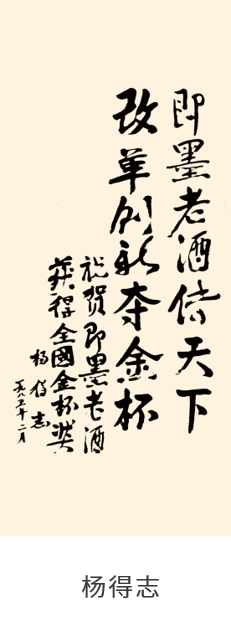 即墨老酒传天下
改革创新夺金杯
祝贺即墨老酒
获得全國金杯奖
杨得志
一九八五年二月
杨得志